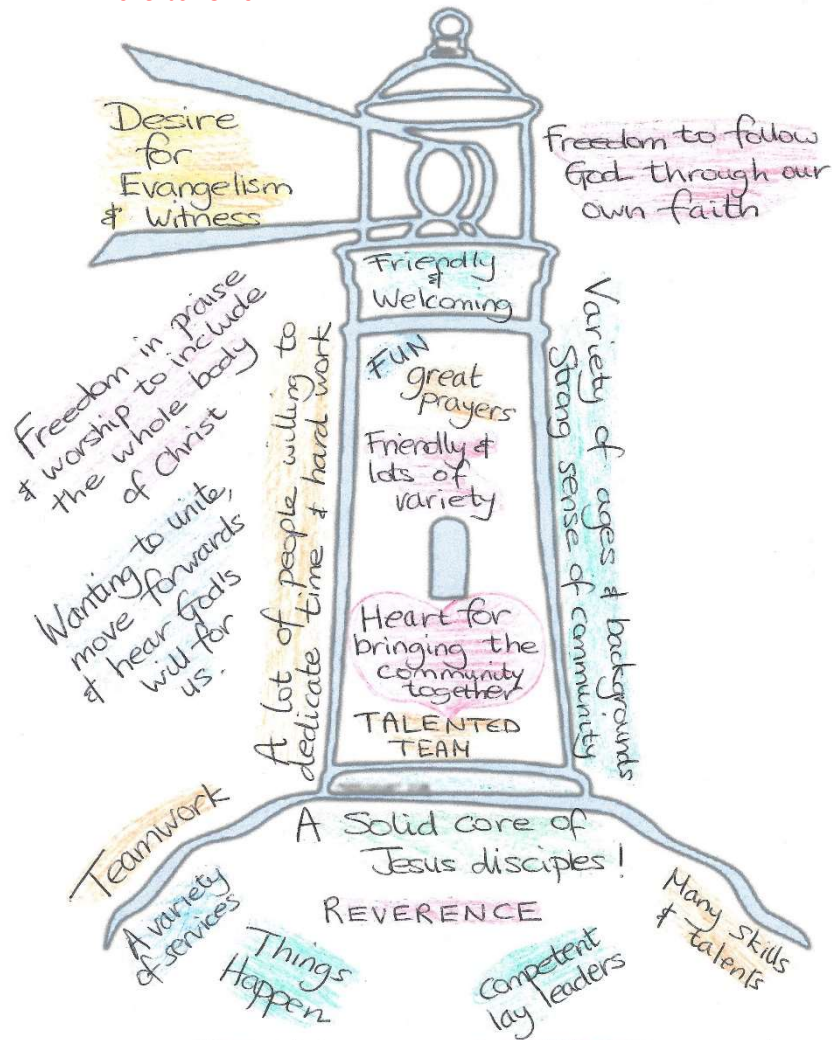 Desire
for
Evangelism
& Witness
Freedom to follow
God through our
own faith
Friendly
&
Welcoming
Freedom in praise
& worship to include
the whole body
of Christ
Wanting to unite,
move forwards
& hear God's
will for
us.
A lot of people willing to
dedicate time & hard work
FUN
great
prayers
Friendly &
lots of
variety
Heart for
bringing the
community
together
TALENTED
TEAM
Variety of ages & backgrounds
Strong sense of community
Teamwork
A Solid core of
Jesus disciples!
A variety
of services
REVERENCE
Many skills
& talents
Things
Happen
competent
lay leaders